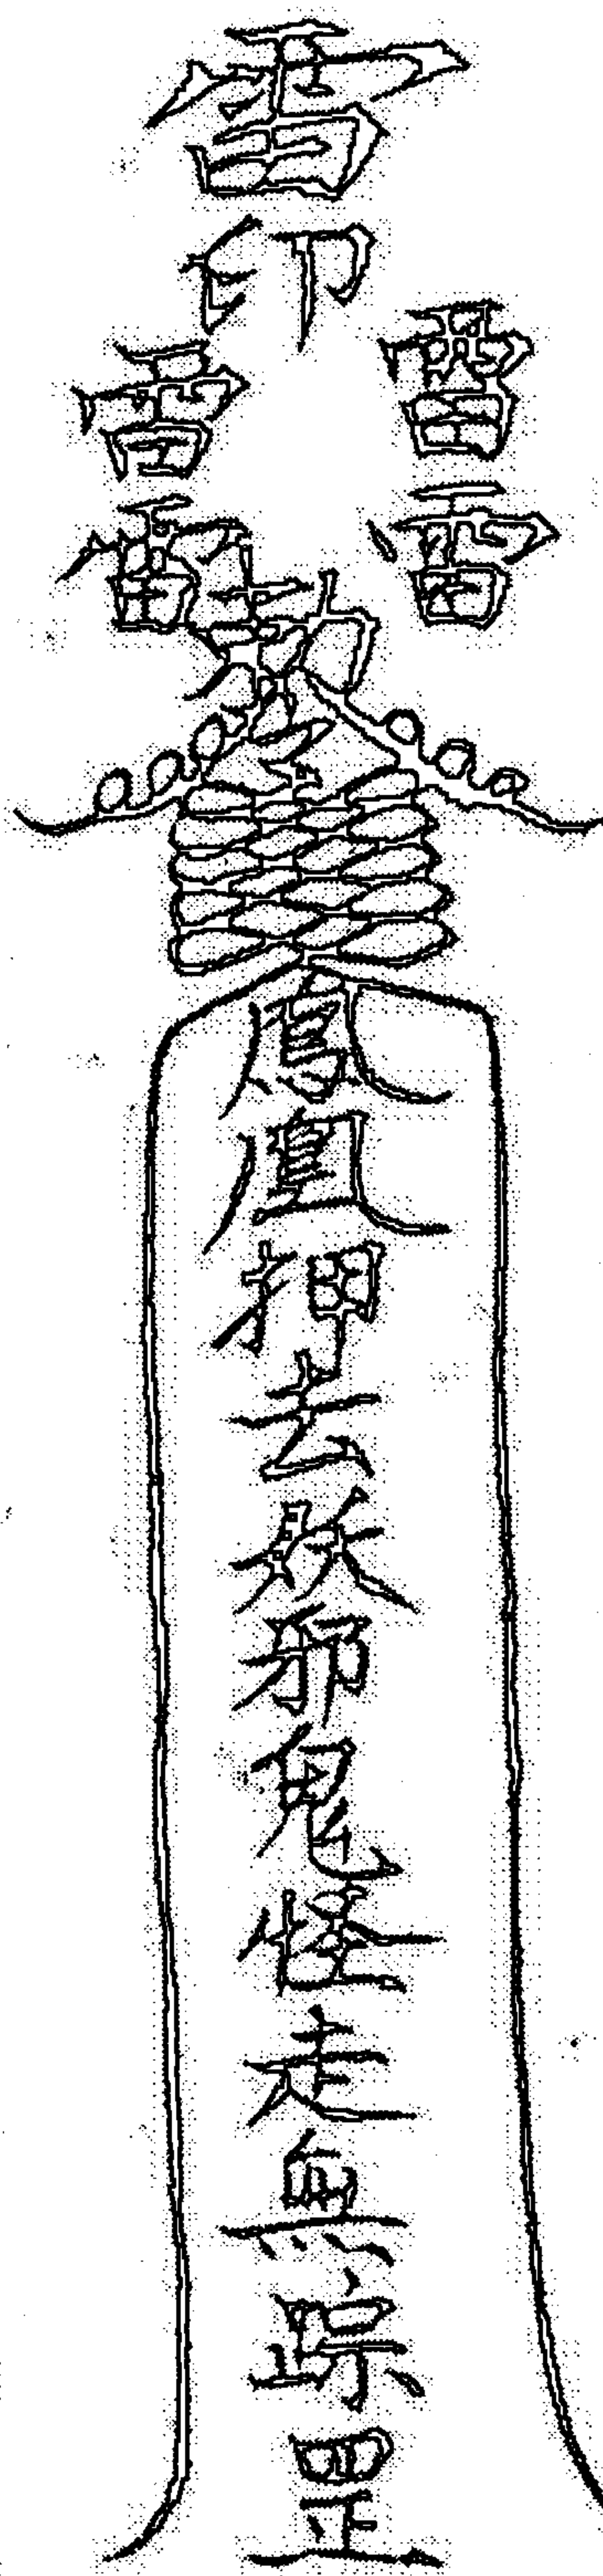 雷印
雷雷
雷雷
勅
鳳凰押去妖邪鬼怪走無踪罡